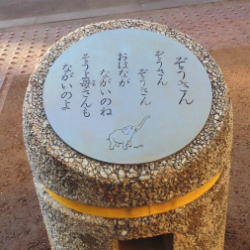 ぞうさん
ぞうさん
ぞうさん
おはなが
ながいのね
そうよ母さんも
ながいのよ